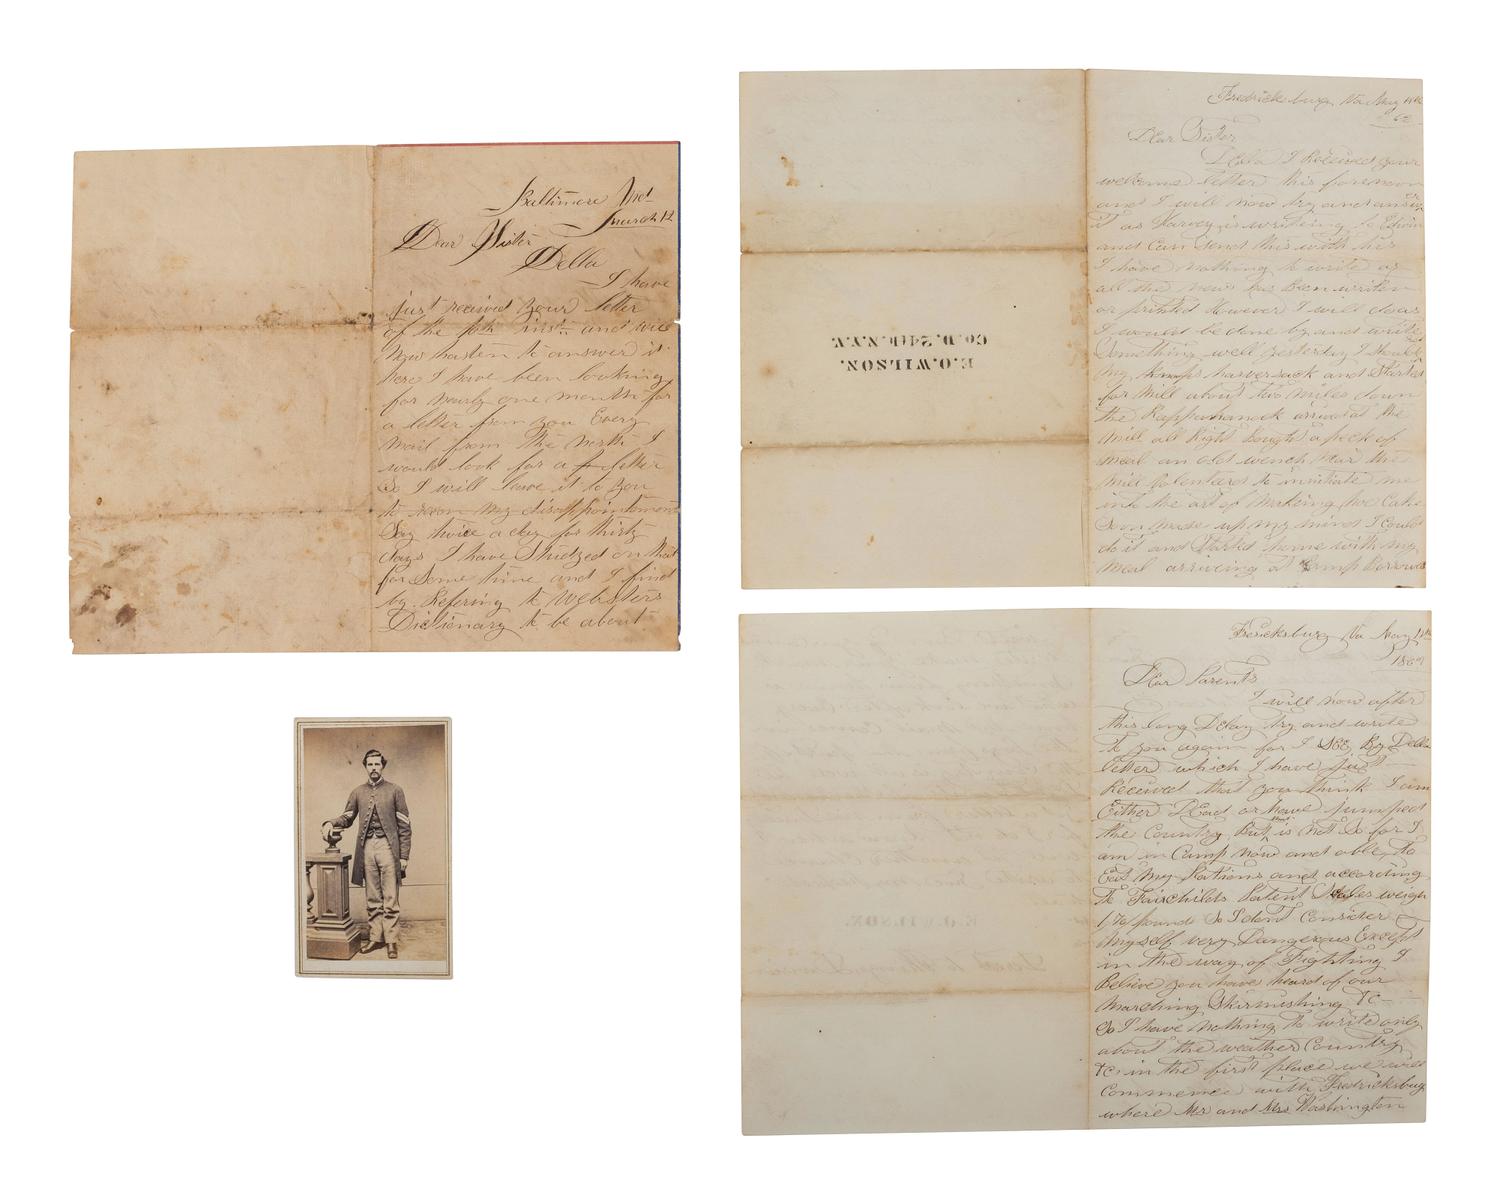 Baltimore Md
March 12
Dear Sister
Della
I have
just recieved your letter
of the 10th inst. and will
now hasten to answer it
here I have been looking
for nearly one month for
a letter from you Every
mail from the North I
would look for a letter
So I will leave it to you
to my disappointment
Say twice a day for thirty
days I have Studyed on that
for Some time and I find
by Refering to Websters
Dictionary to be about
Fredricksburg Va May
62
Dear Sister
Della I Received your
welcome letter this forenoon
and I will now try and answer
it as Harvey is writing to Edwin
and Can Send this with his
I have nothing to write of
all the news has Been writen
or printed However I will do as
I would be done by and write
Something well yesterday I Should
my haversack and Started
for Mill about two miles down
the Rappahanock arrived at the
Mill all Right Bought a peck of
Meal an old wench near the
Mill Volenteerd to innitiate me
into the art of Making Hoe Cake
Soon Made up my mind I Could
do it and Started home with my
Meal arriveing at Camp Borrowed
E.O.WILSON.
CO.D.24TH.N.Y.V.
Fredricksburg Va May
186
Dear Parents
I will now after
this long Delay try and write
to you again for I See By Della
letter which I have just
Received that you think I am
Either Dead or have jumped
the Country But is not So for I
am in Camp now and able to
Eat my Rations and according
to Fairchilds Patent Scales weigh
176 pounds So I dont Consider
Myself very Dangerous Except
in the way of Fighting I
Believe you have heard of our
Marching Skirmishing &c
So I have nothing to write only
about the weather Country
&c in the first place we will
Commence with Fredricksburg
where Mr and Mrs Washington
E.O.WILSON.